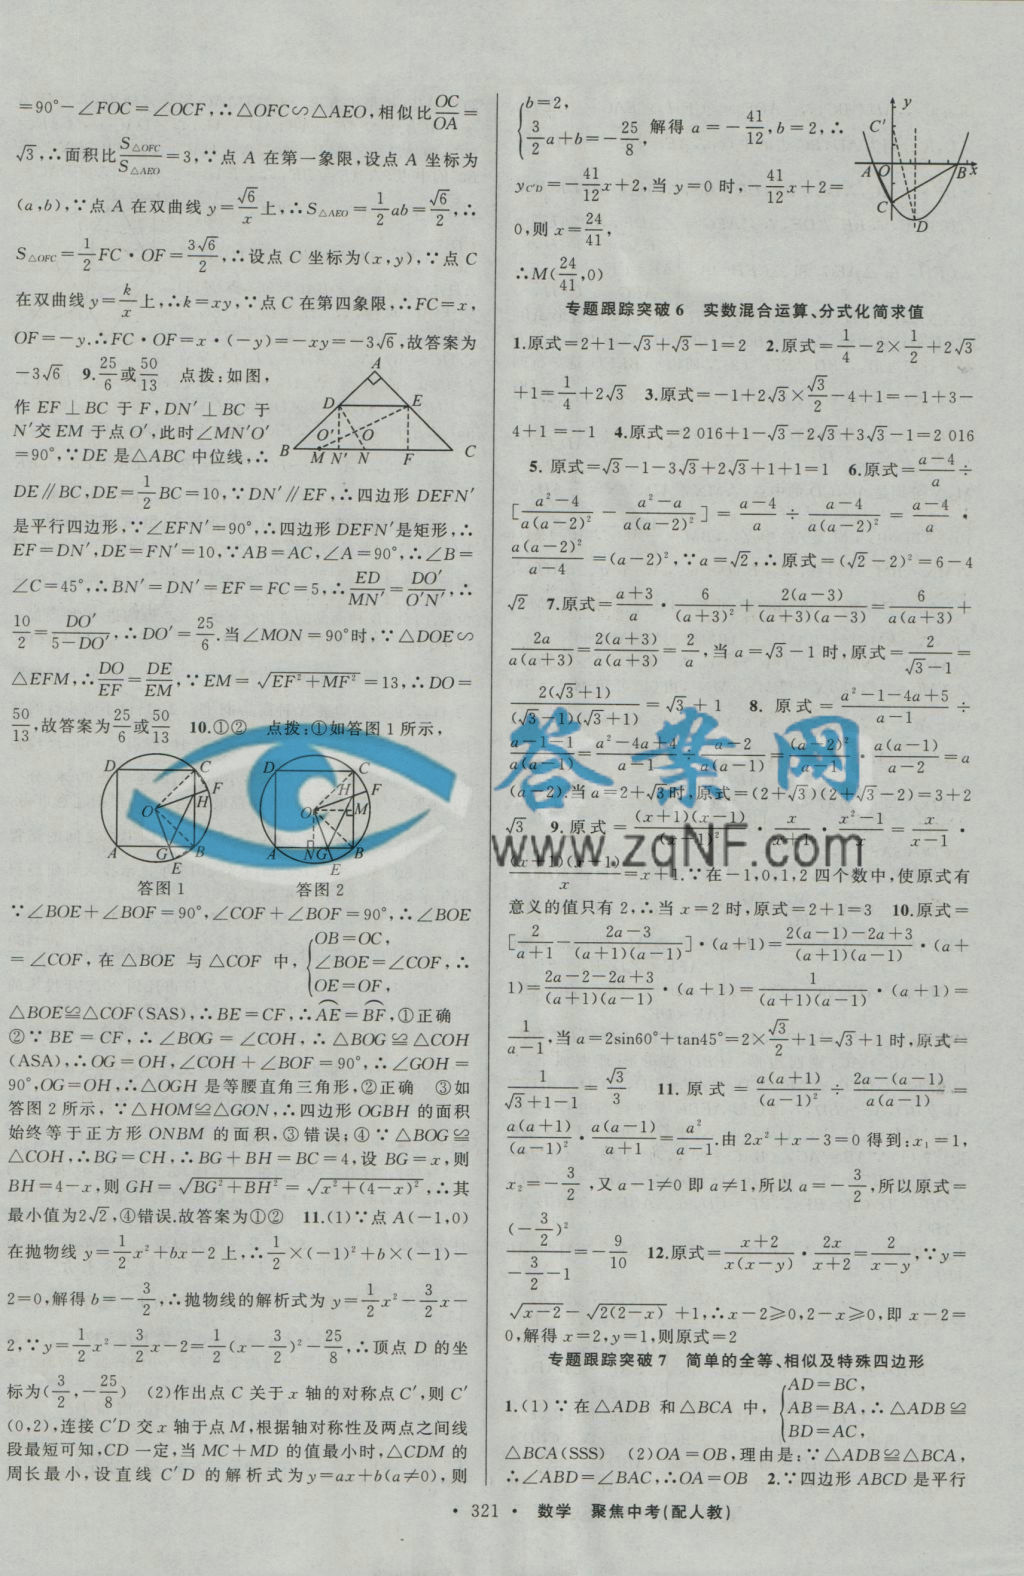 =90°-∠FOC=∠OCF,∴△OFC∽△AEO,相似比OC/OA=
√3,∴面积比S△OFC/S△AEO=3,∵点 A 在第一象限,设点 A 坐标为
(a,b),∵点 A 在双曲线 y=√6/x上,∴S△AEO=1/2ab=√6/2,∴
S△OFC=1/2FC·OF=3√6/2,∴设点 C 坐标为(x,y),∵点 C
在双曲线 y=k/x上,∴k=xy,∵点 C 在第四象限,∴FC=x,
OF=-y.∴FC·OF=x·(-y)=-xy=-3√6,故答案为
-3√6 9.25/6或50/13 点拨:如图,
作 EF⊥BC 于 F,DN′⊥BC 于
N′交 EM 于点 O′,此时∠MN′O′
=90°,∵DE 是△ABC 中位线,∴
A
D E
O′ O
B M N′ N F C
DE∥BC,DE=1/2BC=10,∵DN′∥EF,∴四边形 DEFN′
是平行四边形,∵∠EFN′=90°,∴四边形 DEFN′是矩形,∴
EF=DN′,DE=FN′=10,∵AB=AC,∠A=90°,∴∠B=
∠C=45°,∴BN′=DN′=EF=FC=5,∴ED/MN′=DO′/O′N′,∴
10/2=DO′/(5-DO′),∴DO′=25/6.当∠MON=90°时,∵△DOE∽
△EFM,∴DO/EF=DE/EM,∵EM=√(EF²+MF²)=13,∴DO=
50/13,故答案为25/6或50/13 10.①② 点拨:①如答图 1 所示,
D C F H O A G B E
D C F H O M A N G B E
答图 1 答图 2
∵∠BOE+∠BOF=90°,∠COF+∠BOF=90°,∴∠BOE
=∠COF,在△BOE 与△COF 中,{OB=OC, ∠BOE=∠COF, OE=OF, ∴
△BOE≌△COF(SAS),∴BE=CF,∴A͡E=B͡F,①正确
②∵BE=CF,∴∠BOG=∠COH,∴△BOG≌△COH
(ASA),∴OG=OH,∠COF+∠BOF=90°,∴∠GOH=
90°,OG=OH,∴△OGH 是等腰直角三角形,②正确 ③如
答图 2 所示,∵△HOM≌△GON,∴四边形 OGBH 的面积
始终等于正方形 ONBM 的面积,③错误;④∵△BOG≌
△COH,∴BG=CH,∴BG+BH=BC=4,设 BG=x,则
BH=4-x,则 GH=√(BG²+BH²)=√(x²+(4-x)²),∴其
最小值为2√2,④错误.故答案为①② 11.(1)∵点 A(-1,0)
在抛物线 y=1/2x²+bx-2 上,∴1/2×(-1)²+b×(-1)-
2=0,解得 b=-3/2,∴抛物线的解析式为 y=1/2x²-3/2x-
2,∵y=1/2x²-3/2x-2=1/2(x-3/2)²-25/8,∴顶点 D 的坐
标为(3/2,-25/8) (2)作出点 C 关于 x 轴的对称点 C′,则 C′
(0,2),连接 C′D 交 x 轴于点 M,根据轴对称性及两点之间线
段最短可知,CD 一定,当 MC+MD 的值最小时,△CDM 的
周长最小,设直线 C′D 的解析式为 y=ax+b(a≠0),则
{b=2, 3/2a+b=-25/8, 解得 a=-41/12,b=2,∴
y_C′D=-41/12x+2,当 y=0 时,-41/12x+2=
0,则 x=24/41,
∴M(24/41,0)
y C′ A O B x C D
专题跟踪突破 6 实数混合运算、分式化简求值
1.原式=2+1-√3+√3-1=2 2.原式=1/4-2×1/2+2√3
+1=1/4+2√3 3.原式=-1+2√3×√3/2-4+1=-1+3-
4+1=-1 4.原式=2 016+1-√3-2√3+3√3-1=2 016
5. 原式=√3-1-3√3+2√3+1+1=1 6.原式=(a-4)/a÷
[(a²-4)/(a(a-2)²)-(a²-a)/(a(a-2)²)]=(a-4)/a÷(a-4)/(a(a-2)²)=(a-4)/a·
a(a-2)²/(a-4)=(a-2)²,∵a=√2,∴原式=(√2-2)²=6-4
√2 7.原式=(a+3)/a·6/(a+3)²+2(a-3)/((a+3)(a-3))=6/(a(a+3))+
2a/(a(a+3))=2(a+3)/(a(a+3))=2/a,当 a=√3-1 时,原式=2/(√3-1)=
2(√3+1)/((√3-1)(√3+1))=√3+1 8. 原式=(a²-1-4a+5)/(a-1)÷
(a-1-1)/(a(a-1))=(a²-4a+4)/(a-1)÷(a-2)/(a(a-1))=(a-2)²/(a-1)·a(a-1)/(a-2)=a
(a-2).当 a=2+√3时,原式=(2+√3)(2+√3-2)=3+2
√3 9.原式=(x+1)(x-1)/x·x/(x+1)·(x²-1)/x=x/(x-1)·
(x+1)(x-1)/x=x+1.∵在-1,0,1,2 四个数中,使原式有
意义的值只有 2,∴当 x=2 时,原式=2+1=3 10.原式=
[2/(a+1)-(2a-3)/((a+1)(a-1))]·(a+1)=(2(a-1)-2a+3)/((a+1)(a-1))·(a+
1)=(2a-2-2a+3)/((a+1)(a-1))·(a+1)=1/((a+1)(a-1))·(a+1)=
1/(a-1),当 a=2sin60°+tan45°=2×√3/2+1=√3+1 时,原式=
1/(√3+1-1)=√3/3 11. 原式=a(a+1)/(a-1)²÷(2a-(a-1))/(a(a-1))=
a(a+1)/(a-1)²·a(a-1)/(a+1)=a²/(a-1).由 2x²+x-3=0 得到:x₁=1,
x₂=-3/2,又 a-1≠0 即 a≠1,所以 a=-3/2,所以原式=
(-3/2)²/(-3/2-1)=-9/10 12.原式=(x+2)/(x(x-y))·2x/(x+2)=2/(x-y),∵y=
√(x-2)-√(2(2-x))+1,∴x-2≥0,2-x≥0,即 x-2=
0,解得 x=2,y=1,则原式=2
专题跟踪突破 7 简单的全等、相似及特殊四边形
1.(1)∵在△ADB 和△BCA 中,{AD=BC, AB=BA, BD=AC, ∴△ADB≌
△BCA(SSS) (2)OA=OB,理由是:∵△ADB≌△BCA,
∴∠ABD=∠BAC,∴OA=OB 2.∵四边形 ABCD 是平行
·321· 数学 聚焦中考(配人教)
答业网
www.zqNF.com